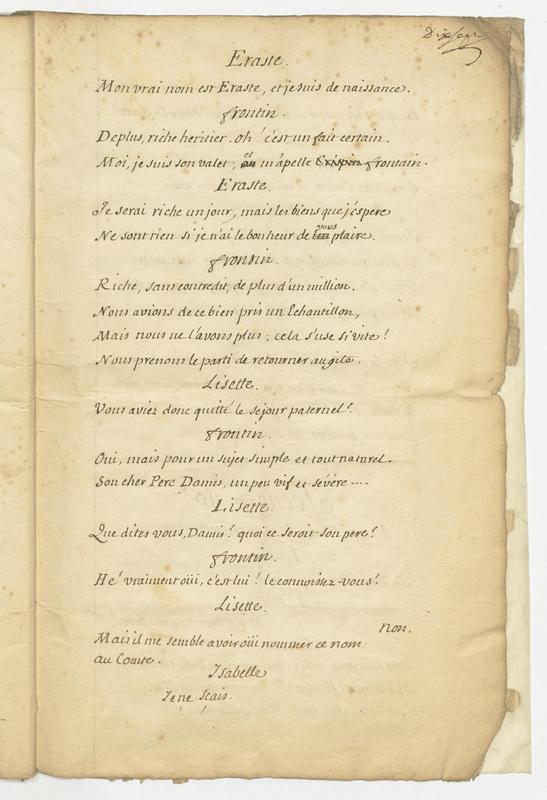 Dixsept
Eraste.
Mon vrai nom est Eraste, et je suis de naissance.
frontin.
De plus, riche heritier. oh! c'est un fait certain.
Moi, je suis son valet, et m'apelle Crispin frontain.
Eraste.
Je serai riche un jour, mais les biens que j'espere
Ne sont rien si je n'ai le bonheur de vous plaire.
frontin.
Riche, sans contredit, de plus d'un million.
Nous avions de ce bien pris un Echantillon,
Mais nous ne l'avons plus; cela s'use si vite!
Nous prenons le parti de retourner au gite.
Lisette.
Vous aviez donc quitté le sejour paternel?
frontin.
Oui, mais pour un sujet simple et tout naturel.
Son cher Pere Damis, un peu vif et sévére ....
Lisette.
Que dites vous, Damis? quoi ce seroit son pere?
frontin.
Hé! vraiment oüi, c'est lui! le connoissez-vous?
Lisette.
non.
Mais il me semble avoir oüi nommer ce nom
au Comte.
Isabelle
Je ne sçais.